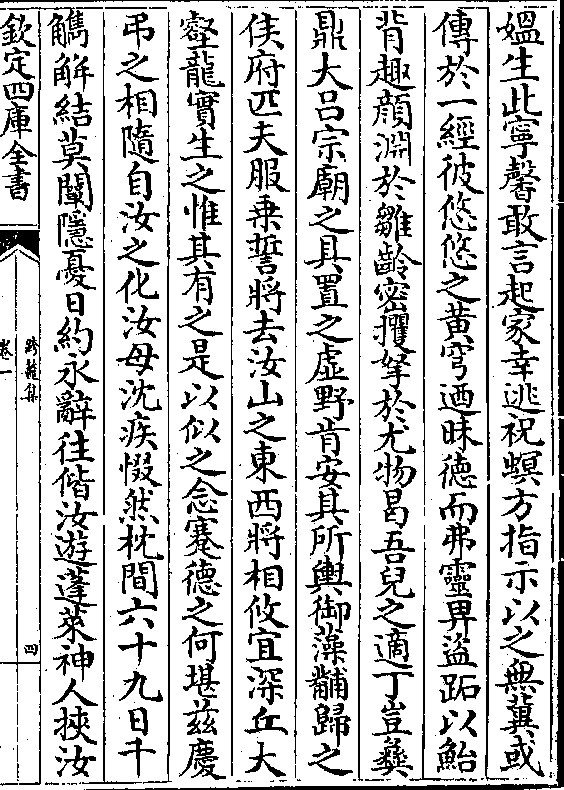 媼生此寧馨敢言起家幸逃祝螟方指示以之無冀或
傳於一經彼悠悠之黃穹迺昧德而弗靈畀盜跖以鮐
背趣顔淵於雛齡密攫拏於尤物曷吾兒之適丁豈彝
鼎大呂宗廟之具置之虛野肯安其所輿御藻黼歸之
侯府匹夫服乗誓將去汝山之東西將相攸宜深丘大
壑龍實生之惟其有之是以似之念蹇德之何堪茲慶
弔之相隨自汝之化汝母沈疾惙然枕間六十九日千
觹觧結莫闡隱憂日約永辭往偕汝遊蓬萊神人挾汝
欽定四庫全書
跨鼇集
卷一
四